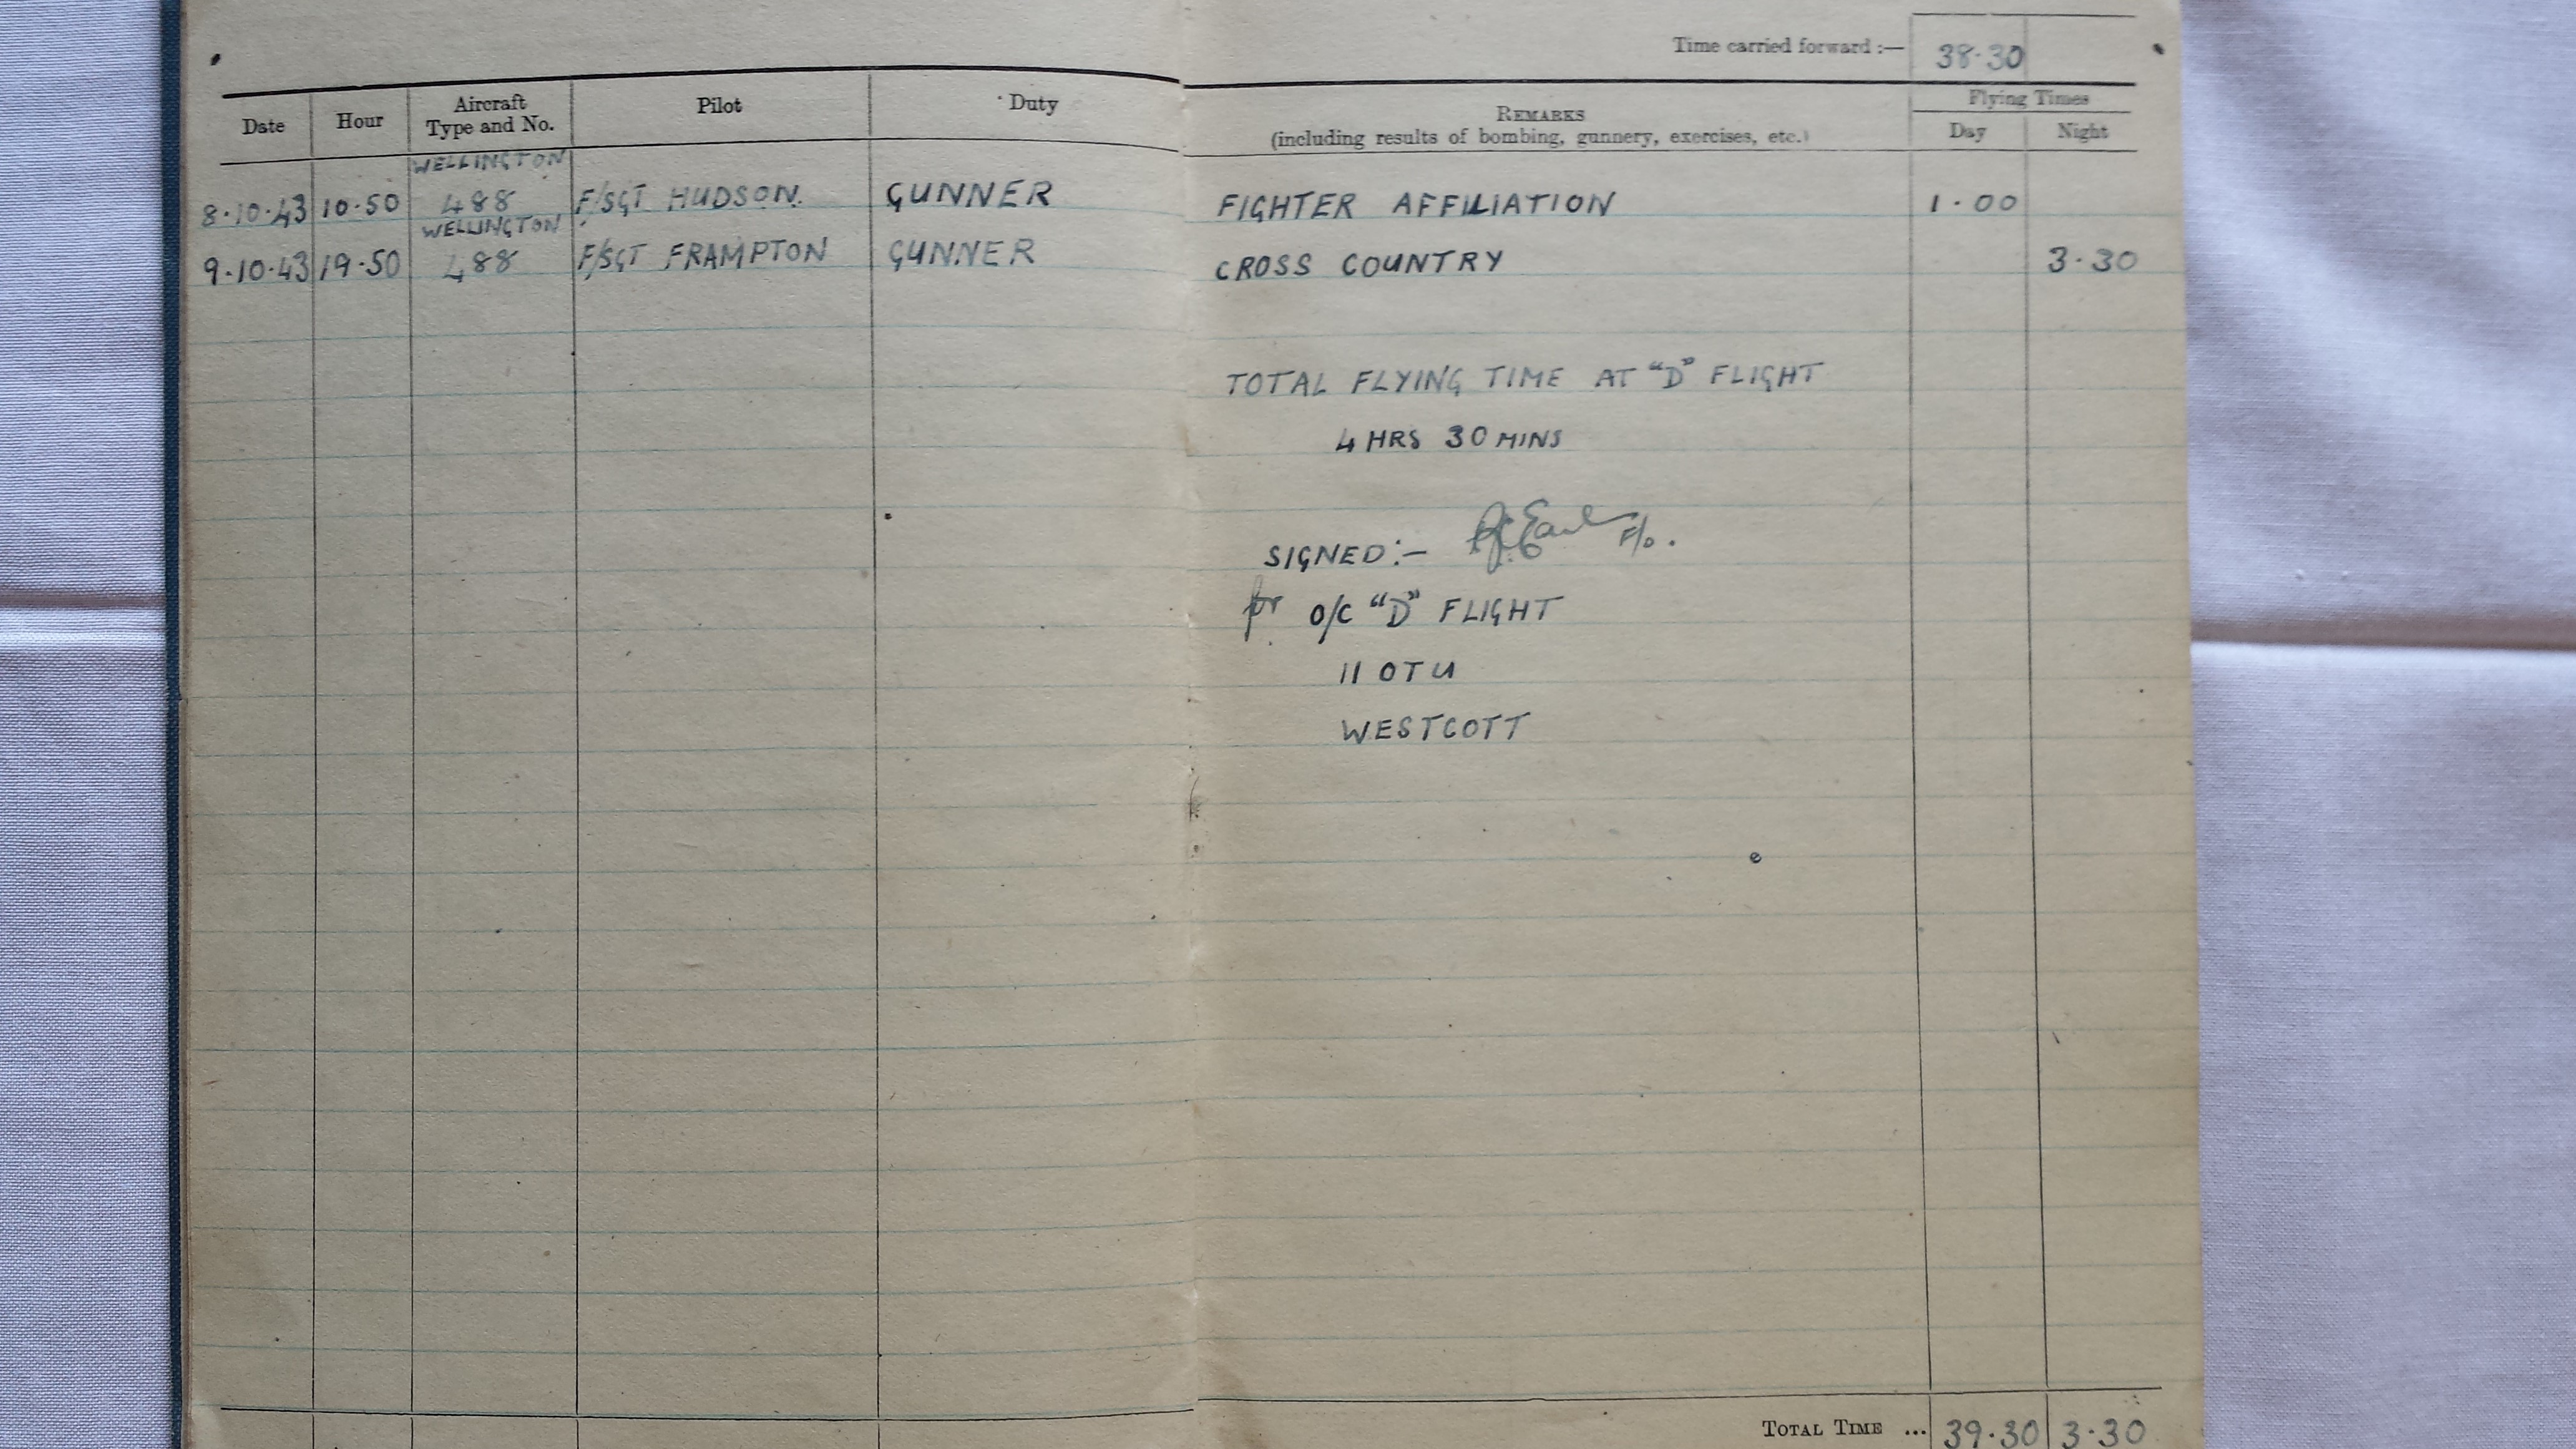 Time carried forward :— 38·30
Date Hour Aircraft Type and No. Pilot Duty REMARKS (including results of bombing, gunnery, exercises, etc.) Flying Times Day Night
WELLINGTON
8·10·43 10·50 488 F/SGT HUDSON. GUNNER FIGHTER AFFILIATION 1·00
WELLINGTON
9·10·43 19·50 488 F/SGT FRAMPTON GUNNER CROSS COUNTRY 3·30
TOTAL FLYING TIME AT "D" FLIGHT
4 HRS 30 MINS
SIGNED:— F/O.
for O/C "D" FLIGHT
11 OTU
WESTCOTT
TOTAL TIME ... 39·30 3·30